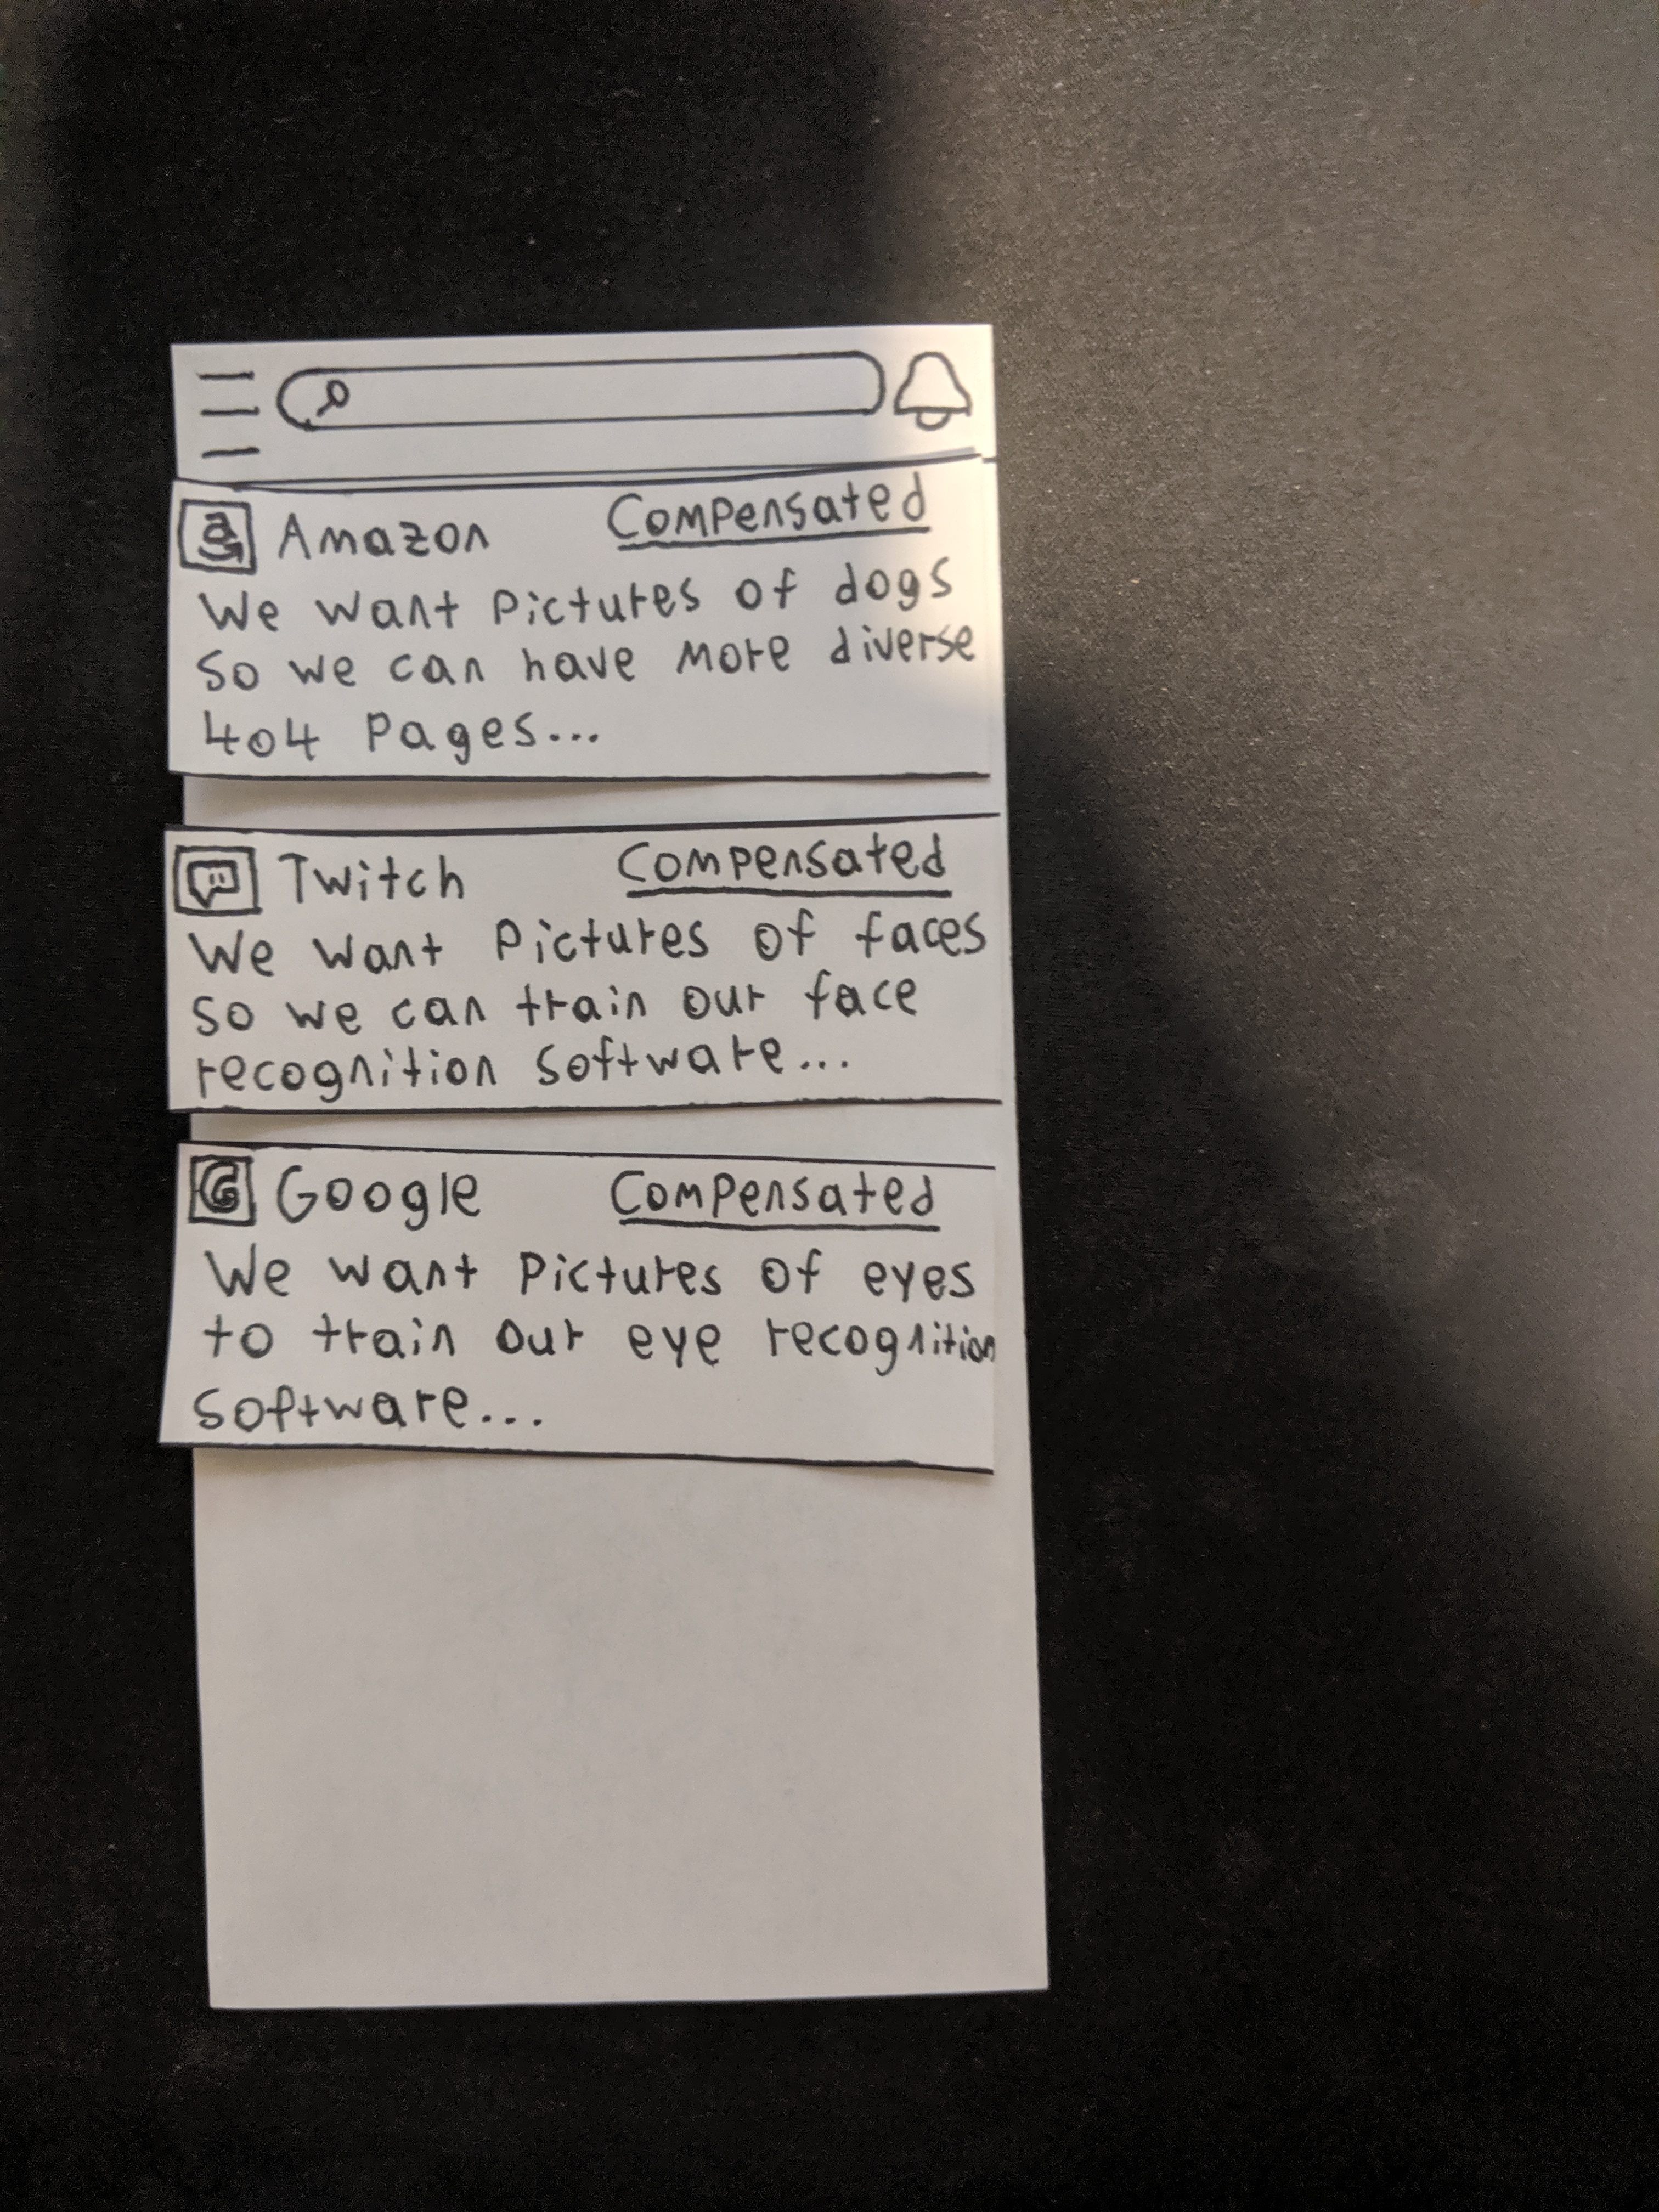 Amazon Compensated
We want pictures of dogs
so we can have more diverse
404 pages...
Twitch Compensated
We want pictures of faces
so we can train our face
recognition software...
G Google Compensated
We want pictures of eyes
to train our eye recognition
software...